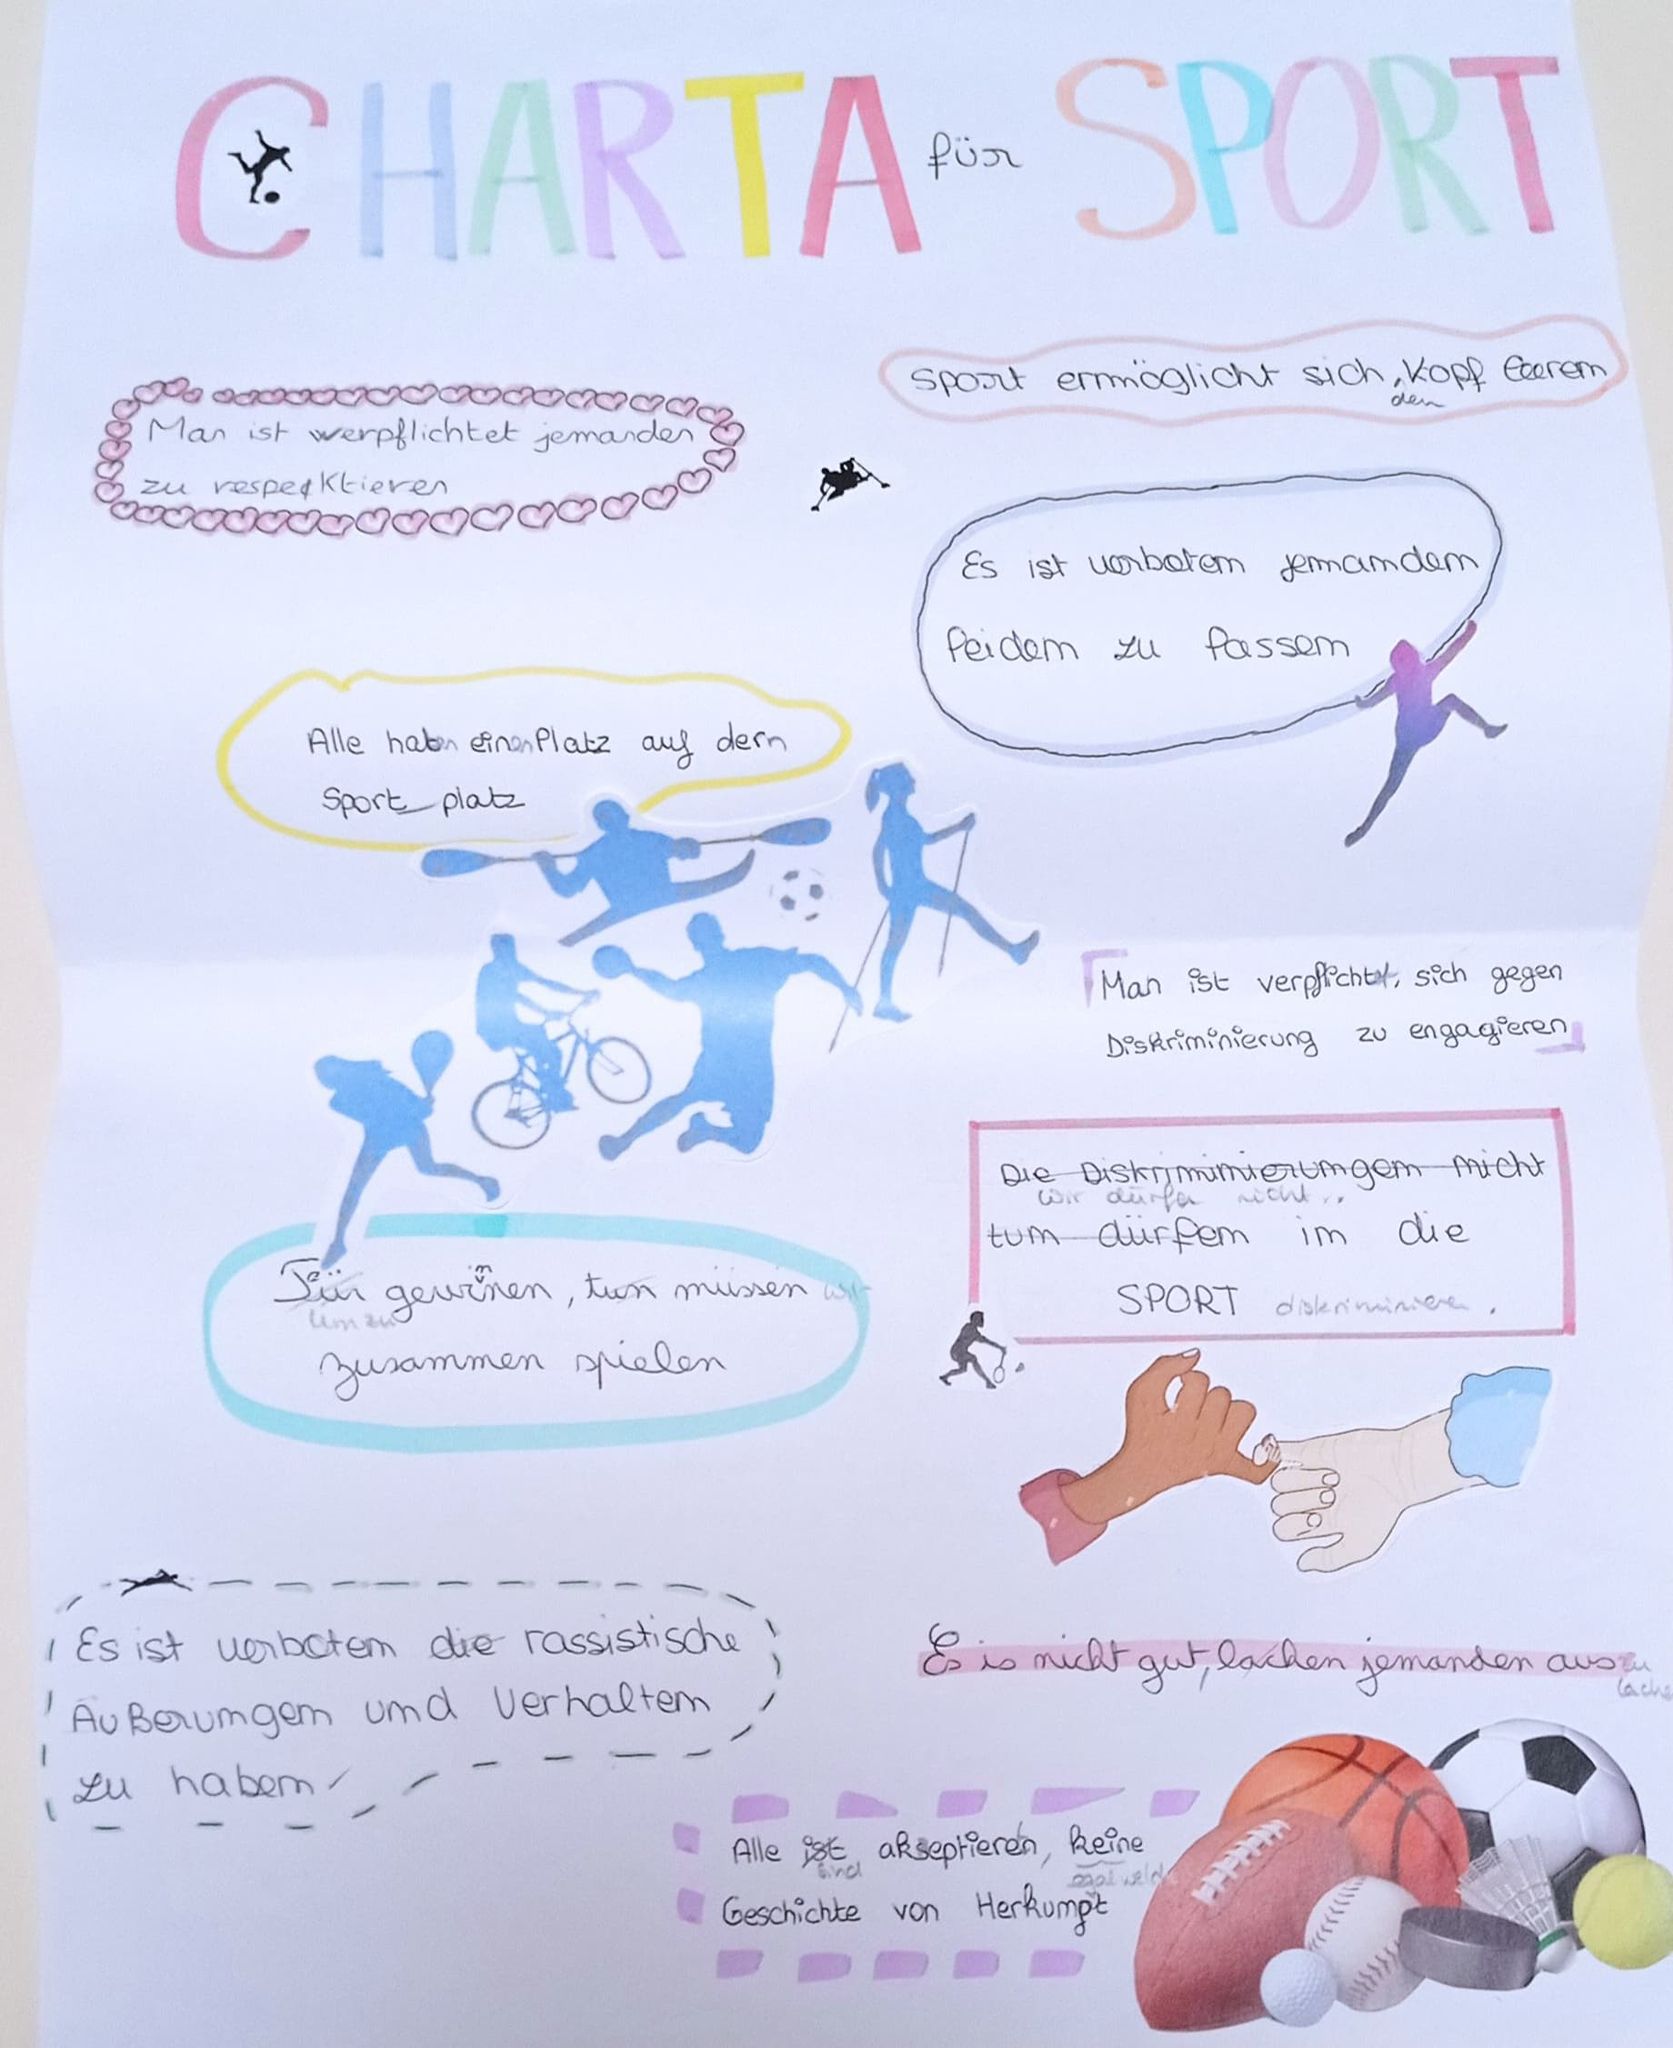 CHARTA für SPORT
Sport ermöglicht sich Kopf leeren
den
Man ist werpflichtet jemanden
zu respecktieren
Es ist verboten jemandem
leiden zu lassen
Alle haben einen Platz auf dem
Sport platz
Man ist verpflichtet, sich gegen
Diskriminierung zu engagieren
Die Diskriminierungen nicht
wir dürfen nicht..
tun dürfen in die
SPORT diskriminieren.
Für gewinnen, tun müssen wir
um zu
zusammen spielen
Es ist verboten die rassistische
Äußerungen und Verhalten
zu haben
Es is nicht gut, lachen jemanden aus zu
lache
Alle ist akseptieren, keine
sind egal welch
Geschichte von Herkumpt